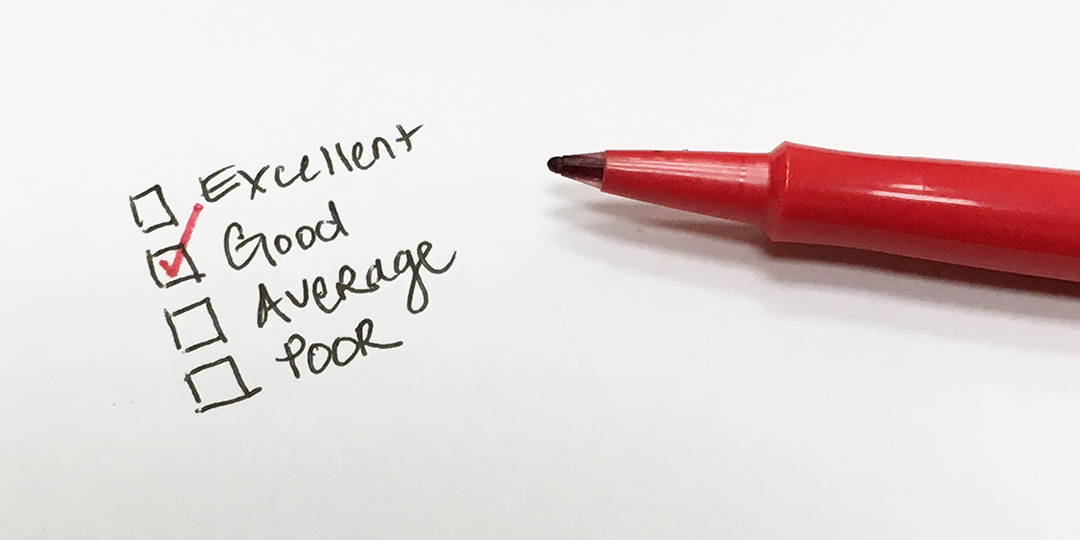 Excellent
Good
Average
Poor